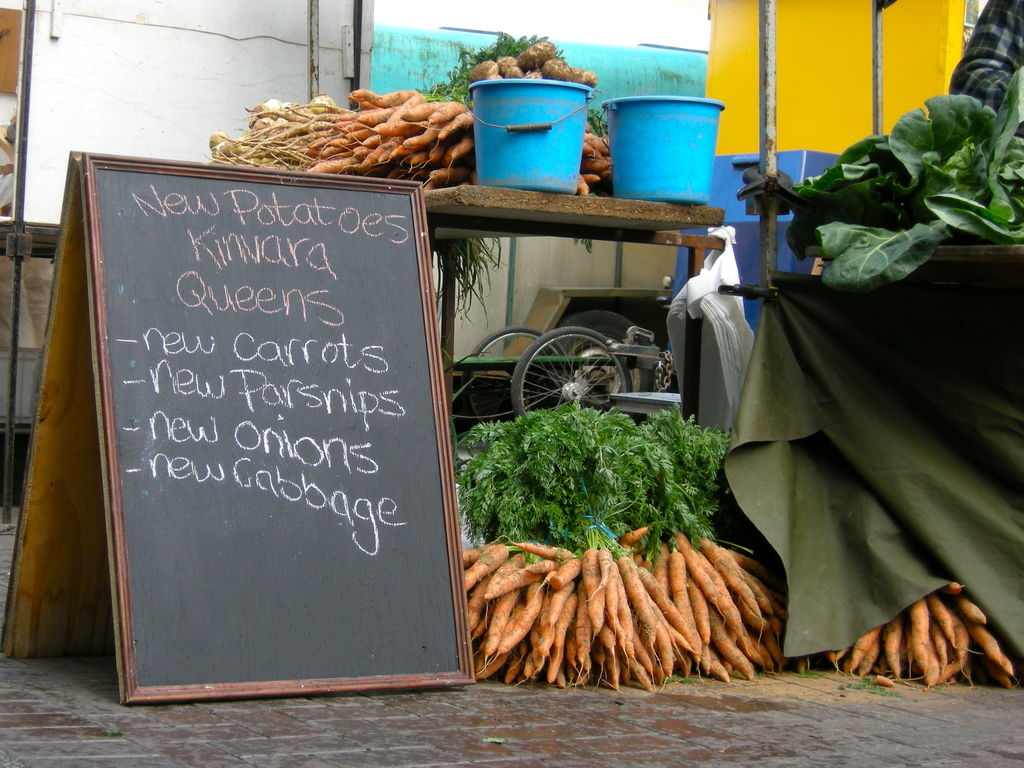 New Potatoes
Kinvara
Queens
- new carrots
- new Parsnips
- new onions
- new Cabbage